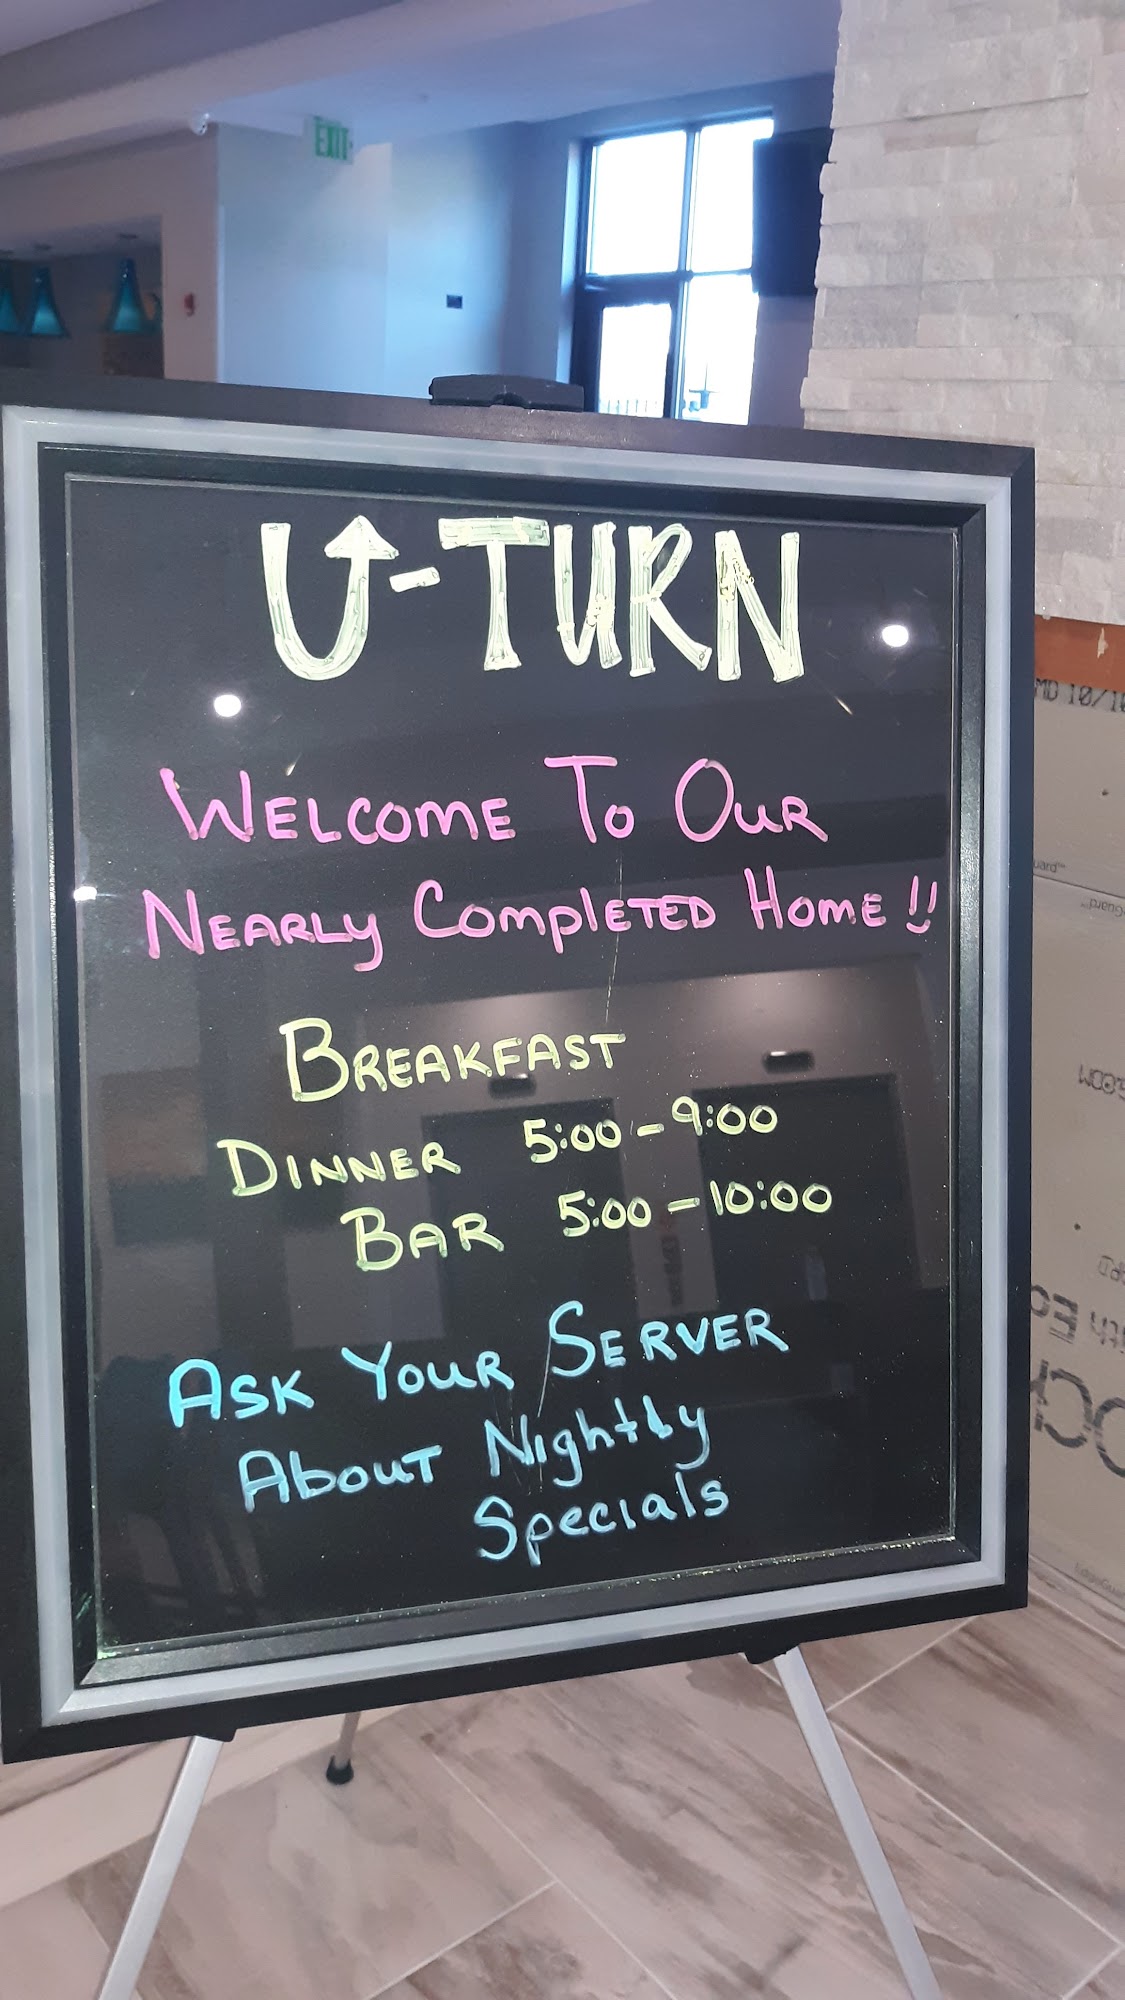 EXIT
U-TURN
WELCOME TO OUR
NEARLY COMPLETED HOME !!
BREAKFAST
DINNER 5:00-9:00
BAR 5:00-10:00
ASK YOUR SERVER
ABOUT Nightly
Specials
MD 10/10